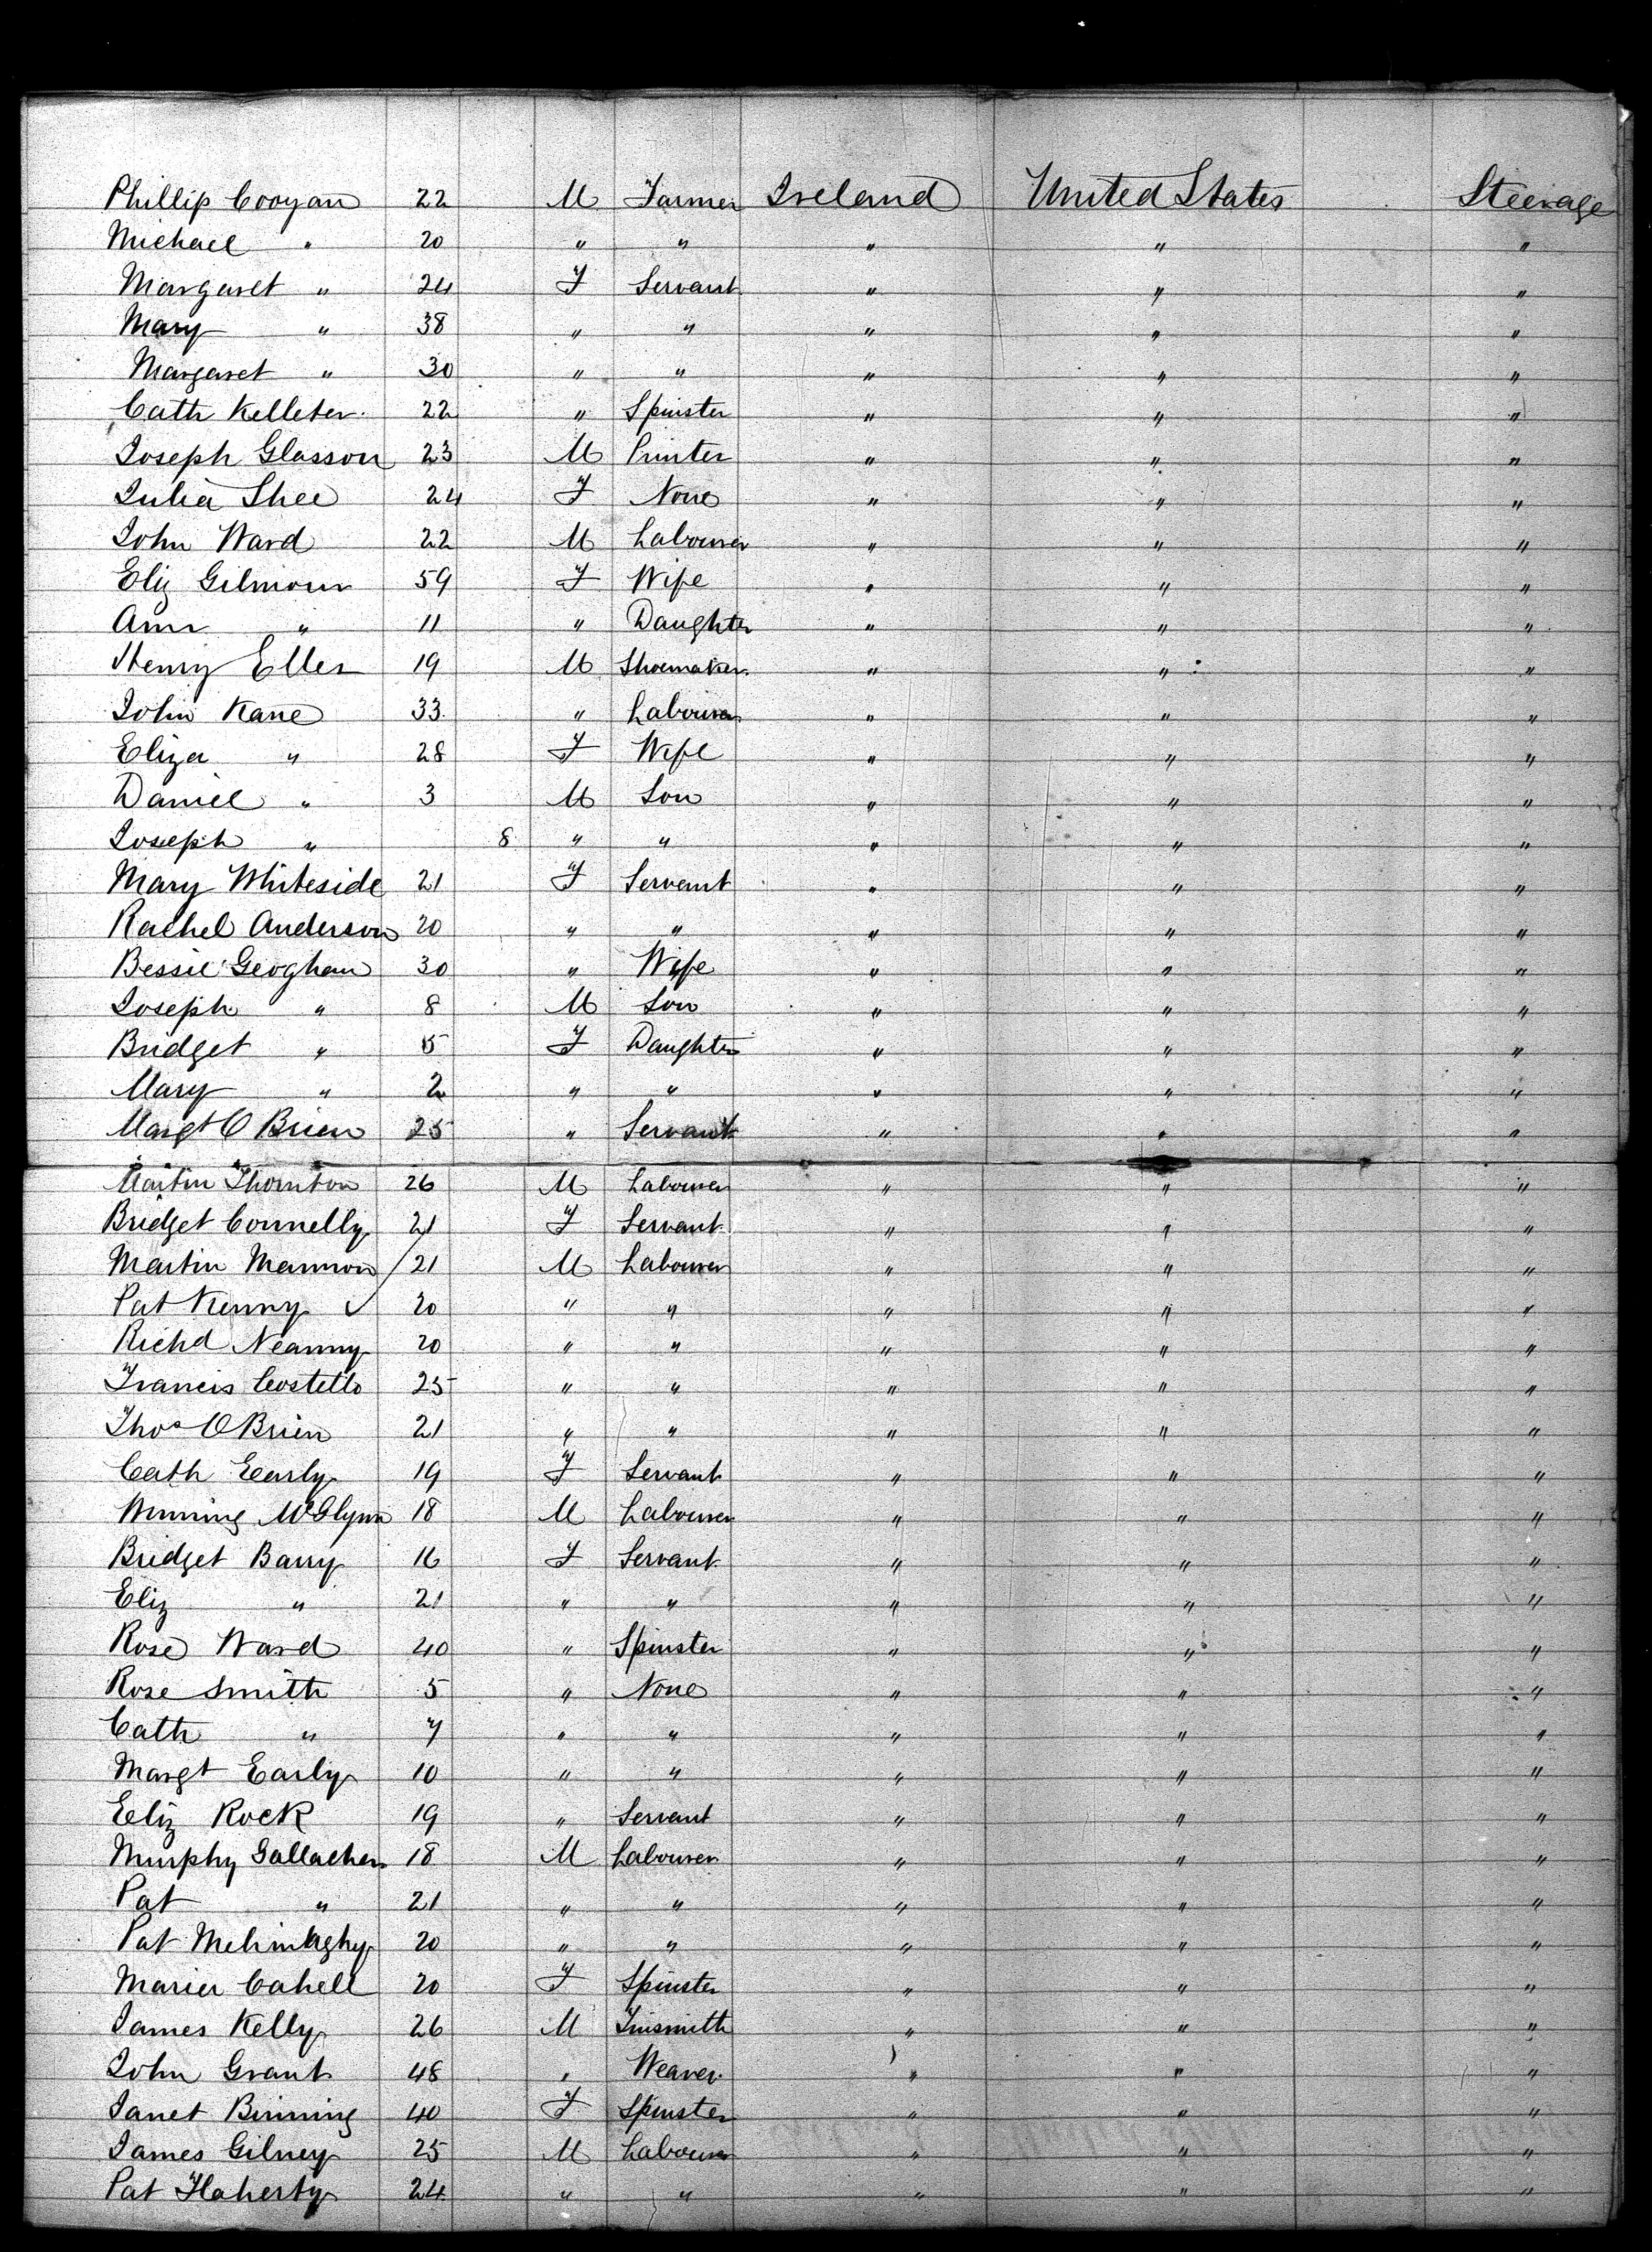 Phillip Cooyan 22 M Farmer Ireland United States Steerage
Michael " 20 " " " " "
Margaret " 24 F Servant " " "
Mary " 38 " " " " "
Margaret " 30 " " " " "
Cath Kelleter 22 " Spinster " " "
Joseph Glasson 23 M Printer " " "
Julia Shee 24 F None " " "
John Ward 22 M Labourer " " "
Eliz Gilmour 59 F Wife " " "
Ann " 11 " Daughter " " "
Henry Eller 19 M Shoemaker " " "
John Kane 33 " Labourer " " "
Eliza " 28 F Wife " " "
Daniel " 3 M Son " " "
Joseph " 8 " " " " "
Mary Whiteside 21 F Servant " " "
Rachel Anderson 20 " " " " "
Bessie Geoghan 30 " Wife " " "
Joseph " 8 M Son " " "
Bridget " 5 F Daughter " " "
Mary " 2 " " " " "
Margt O Brien 25 " Servant " " "
Martin Thornton 26 M Labourer " " "
Bridget Connelly 21 F Servant " " "
Martin Mannion 21 M Labourer " " "
Pat Kenny 20 " " " " "
Richd Neanny 20 " " " " "
Francis Costello 25 " " " " "
Thos O Brien 21 " " " " "
Cath Early 19 F Servant " " "
Winning McGlynn 18 M Labourer " " "
Bridget Barry 16 F Servant " " "
Eliz " 21 " " " " "
Rose Ward 40 " Spinster " " "
Rose Smith 5 " None " " "
Cath " 7 " " " " "
Margt Early 10 " " " " "
Eliz Rock 19 " Servant " " "
Murphy Gallacher 18 M Labourer " " "
Pat " 21 " " " " "
Pat 20 " " " " "
Maria Cahell 20 F Spinster " " "
James Kelly 26 M Tinsmith " " "
John Grant 48 " Weaver " " "
Janet Binning 40 F Spinster " " "
James Gilney 25 M Labourer " " "
Pat Flaherty 24 " " " " "